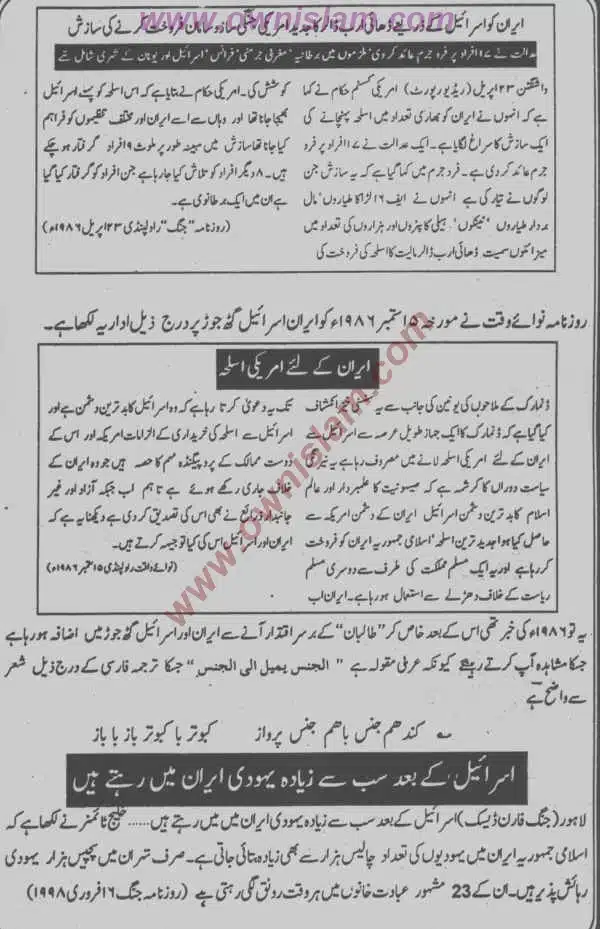 www.ownislam.com
ایران کو اسرائیل کے ذریعے ڈھائی ارب ڈالر کا جدید امریکی جنگی ساز و سامان فروخت کرنے کی سازش
عدالت نے ۱۷ افراد پر فرد جرم عائد کر دی' ملزموں میں برطانیہ' مغربی جرمنی' فرانس' اسرائیل اور یونان کے شہری شامل تھے
واشنگٹن ۲۳ اپریل (ریڈیو رپورٹ) امریکی کسٹم حکام نے کہا
ہے کہ انہوں نے ایران کو بھاری تعداد میں اسلحہ پہنچانے کی
ایک سازش کا سراغ لگایا ہے۔ ایک عدالت نے ۱۷ افراد پر فرد
جرم عائد کر دی ہے۔ فرد جرم میں کہا گیا ہے کہ یہ سازش جن
لوگوں نے تیار کی ہے انہوں نے ایف ۱۶ لڑاکا طیاروں' مال
بردار طیاروں' ٹینکوں' ہیلی کاپٹروں اور ہزاروں کی تعداد میں
میزائلوں سمیت ڈھائی ارب ڈالر مالیت کا اسلحہ کی فروخت کی
کوشش کی۔ امریکی حکام نے بتایا ہے کہ اس اسلحہ کو پہلے اسرائیل
بھیجا جانا تھا اور وہاں سے اسے ایران اور مختلف تنظیموں کو فراہم
کیا جانا تھا سازش میں مبینہ طور پر ملوث ۹ افراد گرفتار ہو چکے
ہیں۔ ۸ دیگر افراد کو تلاش کیا جا رہا ہے جن افراد کو گرفتار کیا گیا
ہے ان میں ایک برطانوی ہے۔
(روزنامہ "جنگ" راولپنڈی ۲۳ اپریل ۱۹۸۶ء)
روزنامہ نوائے وقت نے مورخہ ۱۵ ستمبر ۱۹۸۶ء کو ایران اسرائیل گٹھ جوڑ پر درج ذیل اداریہ لکھا ہے۔
ایران کے لئے امریکی اسلحہ
ڈنمارک کے ملاحوں کی یونین کی جانب سے یہ سنسنی خیز انکشاف
کیا گیا ہے کہ ڈنمارک کا ایک جہاز طویل عرصہ سے اسرائیل سے
ایران کے لئے امریکی اسلحہ لانے میں مصروف رہا ہے یہ نیرنگی
سیاست دوراں کا کرشمہ ہے کہ صیہونیت کا علمبردار اور عالم
اسلام کا بدترین دشمن اسرائیل ایران کے دشمن امریکہ سے
حاصل کیا ہوا جدید ترین اسلحہ' اسلامی جمہوریہ ایران کو فروخت
کر رہا ہے اور یہ ایک مسلم مملکت کی طرف سے دوسری مسلم
ریاست کے خلاف دھڑلے سے استعمال ہو رہا ہے۔ ایران اب
تک یہ دعویٰ کرتا رہا ہے کہ وہ اسرائیل کا بدترین دشمن ہے اور
اسرائیل سے اسلحہ کی خریداری کے الزامات امریکہ اور اس کے
دوست ممالک کے پروپیگنڈہ مہم کا حصہ ہیں جو وہ ایران کے
خلاف جاری رکھے ہوئے ہے تاہم اب جبکہ آزاد اور غیر
جانبدار ذرائع نے بھی اس کی تصدیق کر دی ہے دیکھنا یہ ہے کہ
ایران اور اسرائیل اس کی کیا توجیہ کرتے ہیں۔
(نوائے وقت راولپنڈی ۱۵ ستمبر ۱۹۸۶ء)
یہ تو ۱۹۸۶ء کی خبر تھی اس کے بعد خاص کر "طالبان" کے برسر اقتدار آنے سے ایران اور اسرائیل گٹھ جوڑ میں اضافہ ہو رہا ہے
جسکا مشاہدہ آپ کرتے رہیئے کیونکہ عربی مقولہ ہے "الجنس یمیل الی الجنس" جسکا ترجمہ فارسی کے درج ذیل شعر
سے واضح ہے
کند ہم جنس باہم جنس پرواز کبوتر با کبوتر باز با باز
اسرائیل کے بعد سب سے زیادہ یہودی ایران میں رہتے ہیں
لاہور (جنگ فارن ڈیسک) اسرائیل کے بعد سب سے زیادہ یہودی ایران میں میں رہتے ہیں...... خلیج ٹائمز نے لکھا ہے کہ
اسلامی جمہوریہ ایران میں یہودیوں کی تعداد چالیس ہزار سے بھی زیادہ بتائی جاتی ہے۔ صرف تہران میں پچیس ہزار یہودی
رہائش پذیر ہیں۔ ان کے 23 مشہور عبادت خانوں میں ہر وقت رونق لگی رہتی ہے (روزنامہ جنگ ۱۶ فروری ۱۹۹۸)
www.ownislam.com